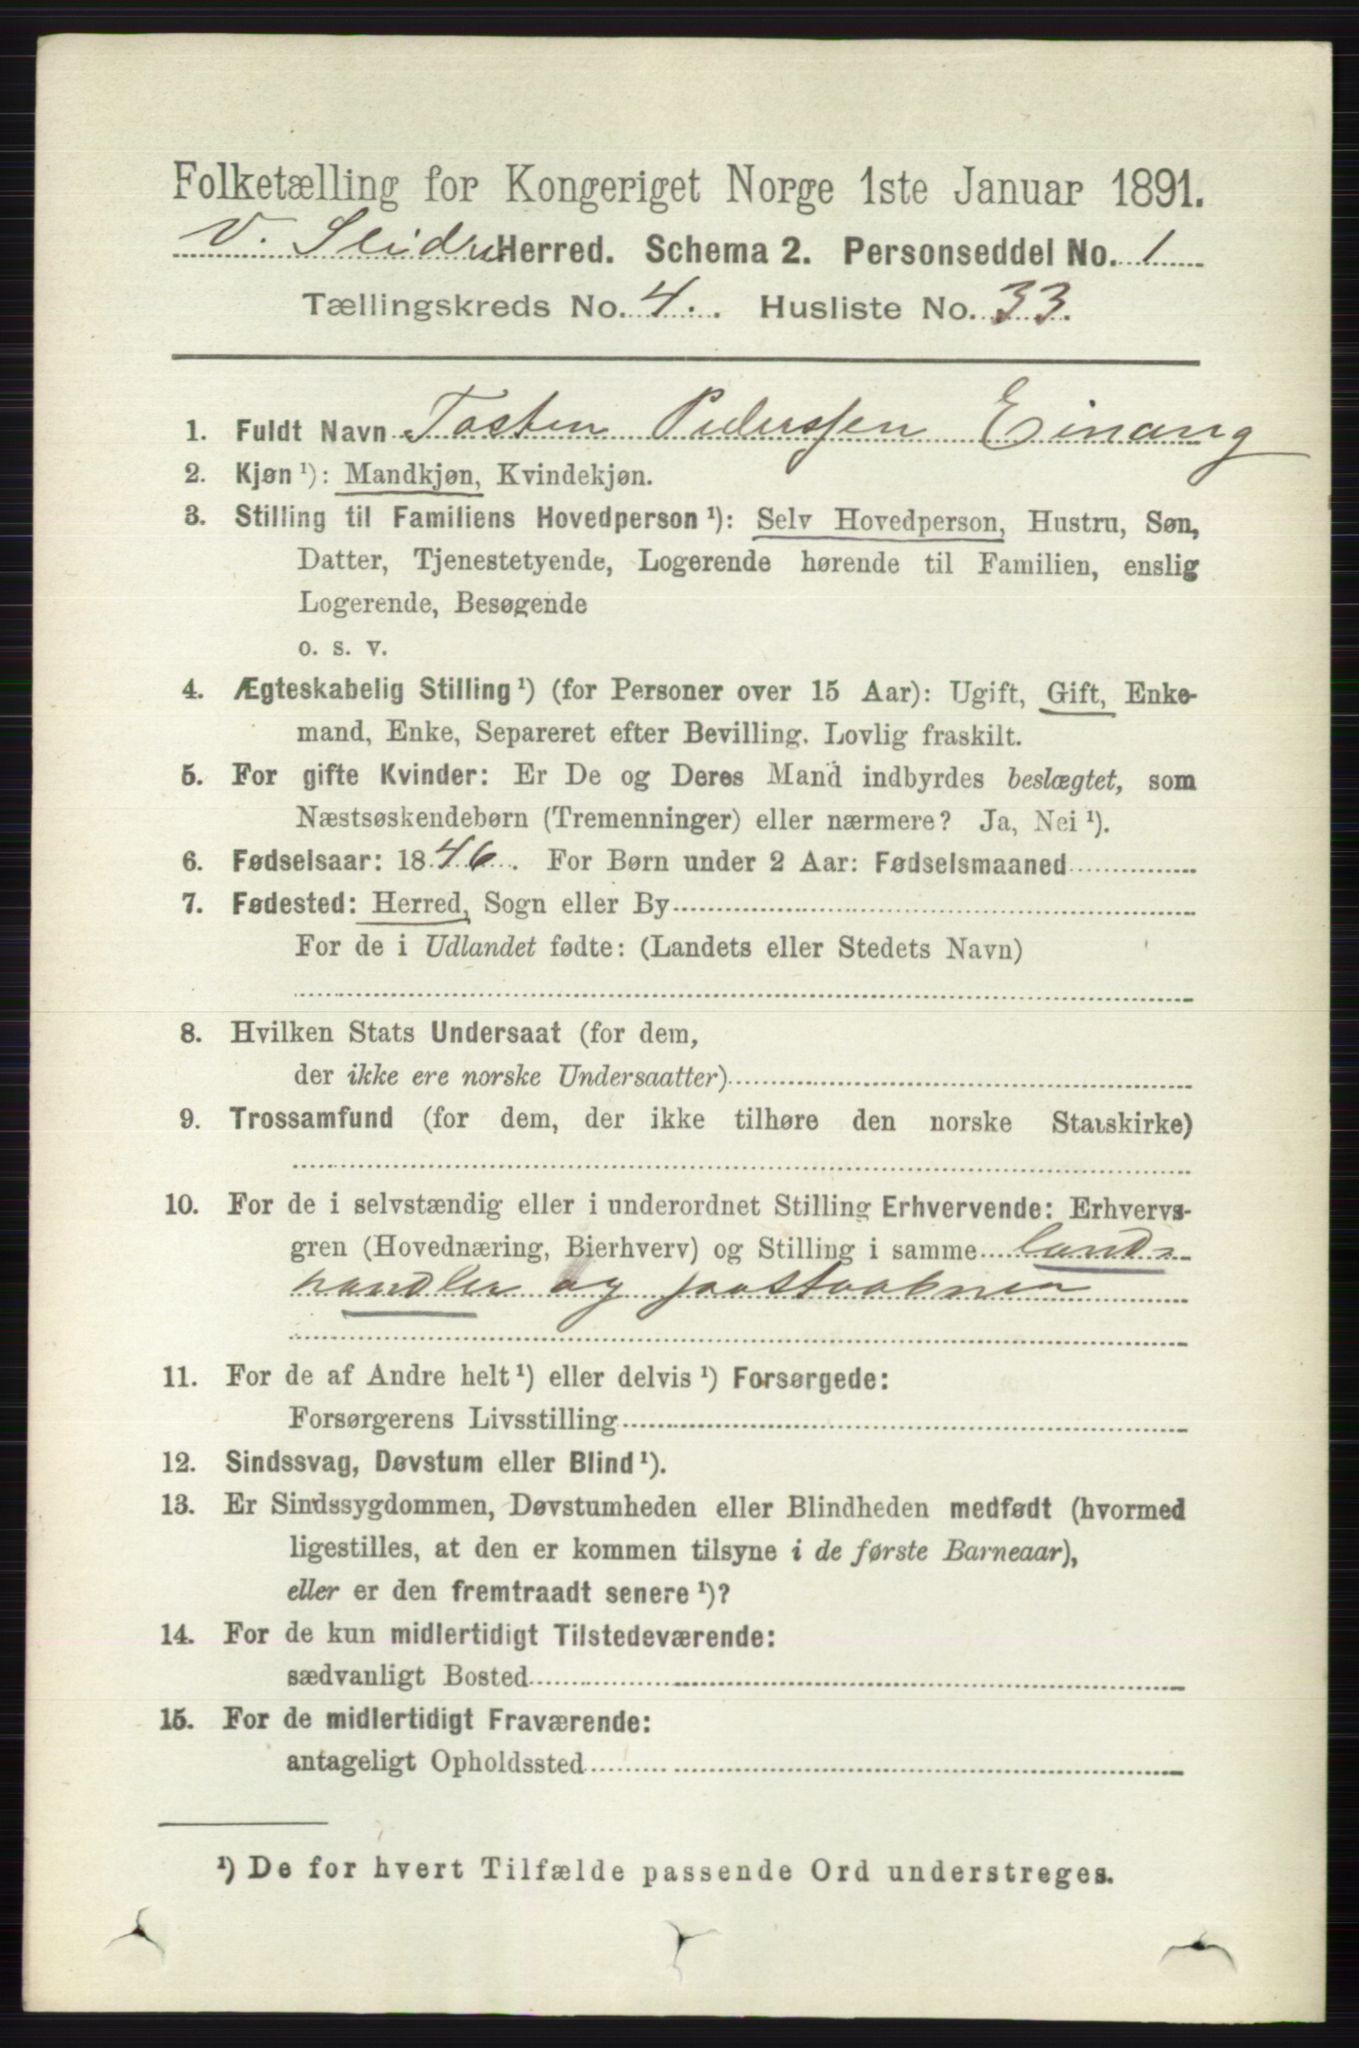 Folketælling for Kongeriget Norge 1ste Januar 1891.
V. Slidre Herred. Schema 2. Personseddel No. 1
Tællingskreds No. 4. Husliste No. 33.
1. Fuldt Navn Tosten Pederssen Einang
2. Kjøn ¹): Mandkjøn, Kvindekjøn.
3. Stilling til Familiens Hovedperson ¹): Selv Hovedperson, Hustru, Søn,
Datter, Tjenestetyende, Logerende hørende til Familien, enslig
Logerende, Besøgende
o. s. v.
4. Ægteskabelig Stilling ¹) (for Personer over 15 Aar): Ugift, Gift, Enke-
mand, Enke, Separeret efter Bevilling. Lovlig fraskilt.
5. For gifte Kvinder: Er De og Deres Mand indbyrdes beslægtet, som
Næstsøskendebørn (Tremenninger) eller nærmere? Ja, Nei ¹).
6. Fødselsaar: 1846. For Børn under 2 Aar: Fødselsmaaned
7. Fødested: Herred, Sogn eller By
For de i Udlandet fødte: (Landets eller Stedets Navn)
8. Hvilken Stats Undersaat (for dem,
der ikke ere norske Undersaatter)
9. Trossamfund (for dem, der ikke tilhøre den norske Statskirke)
10. For de i selvstændig eller i underordnet Stilling Erhvervende: Erhvervs-
gren (Hovednæring, Bierhverv) og Stilling i samme land-
handler og postaabner
11. For de af Andre helt ¹) eller delvis ¹) Forsørgede:
Forsørgerens Livsstilling
12. Sindssvag, Døvstum eller Blind ¹).
13. Er Sindssygdommen, Døvstumheden eller Blindheden medfødt (hvormed
ligestilles, at den er kommen tilsyne i de første Barneaar),
eller er den fremtraadt senere ¹)?
14. For de kun midlertidigt Tilstedeværende:
sædvanligt Bosted
15. For de midlertidigt Fraværende:
antageligt Opholdssted
¹) De for hvert Tilfælde passende Ord understreges.